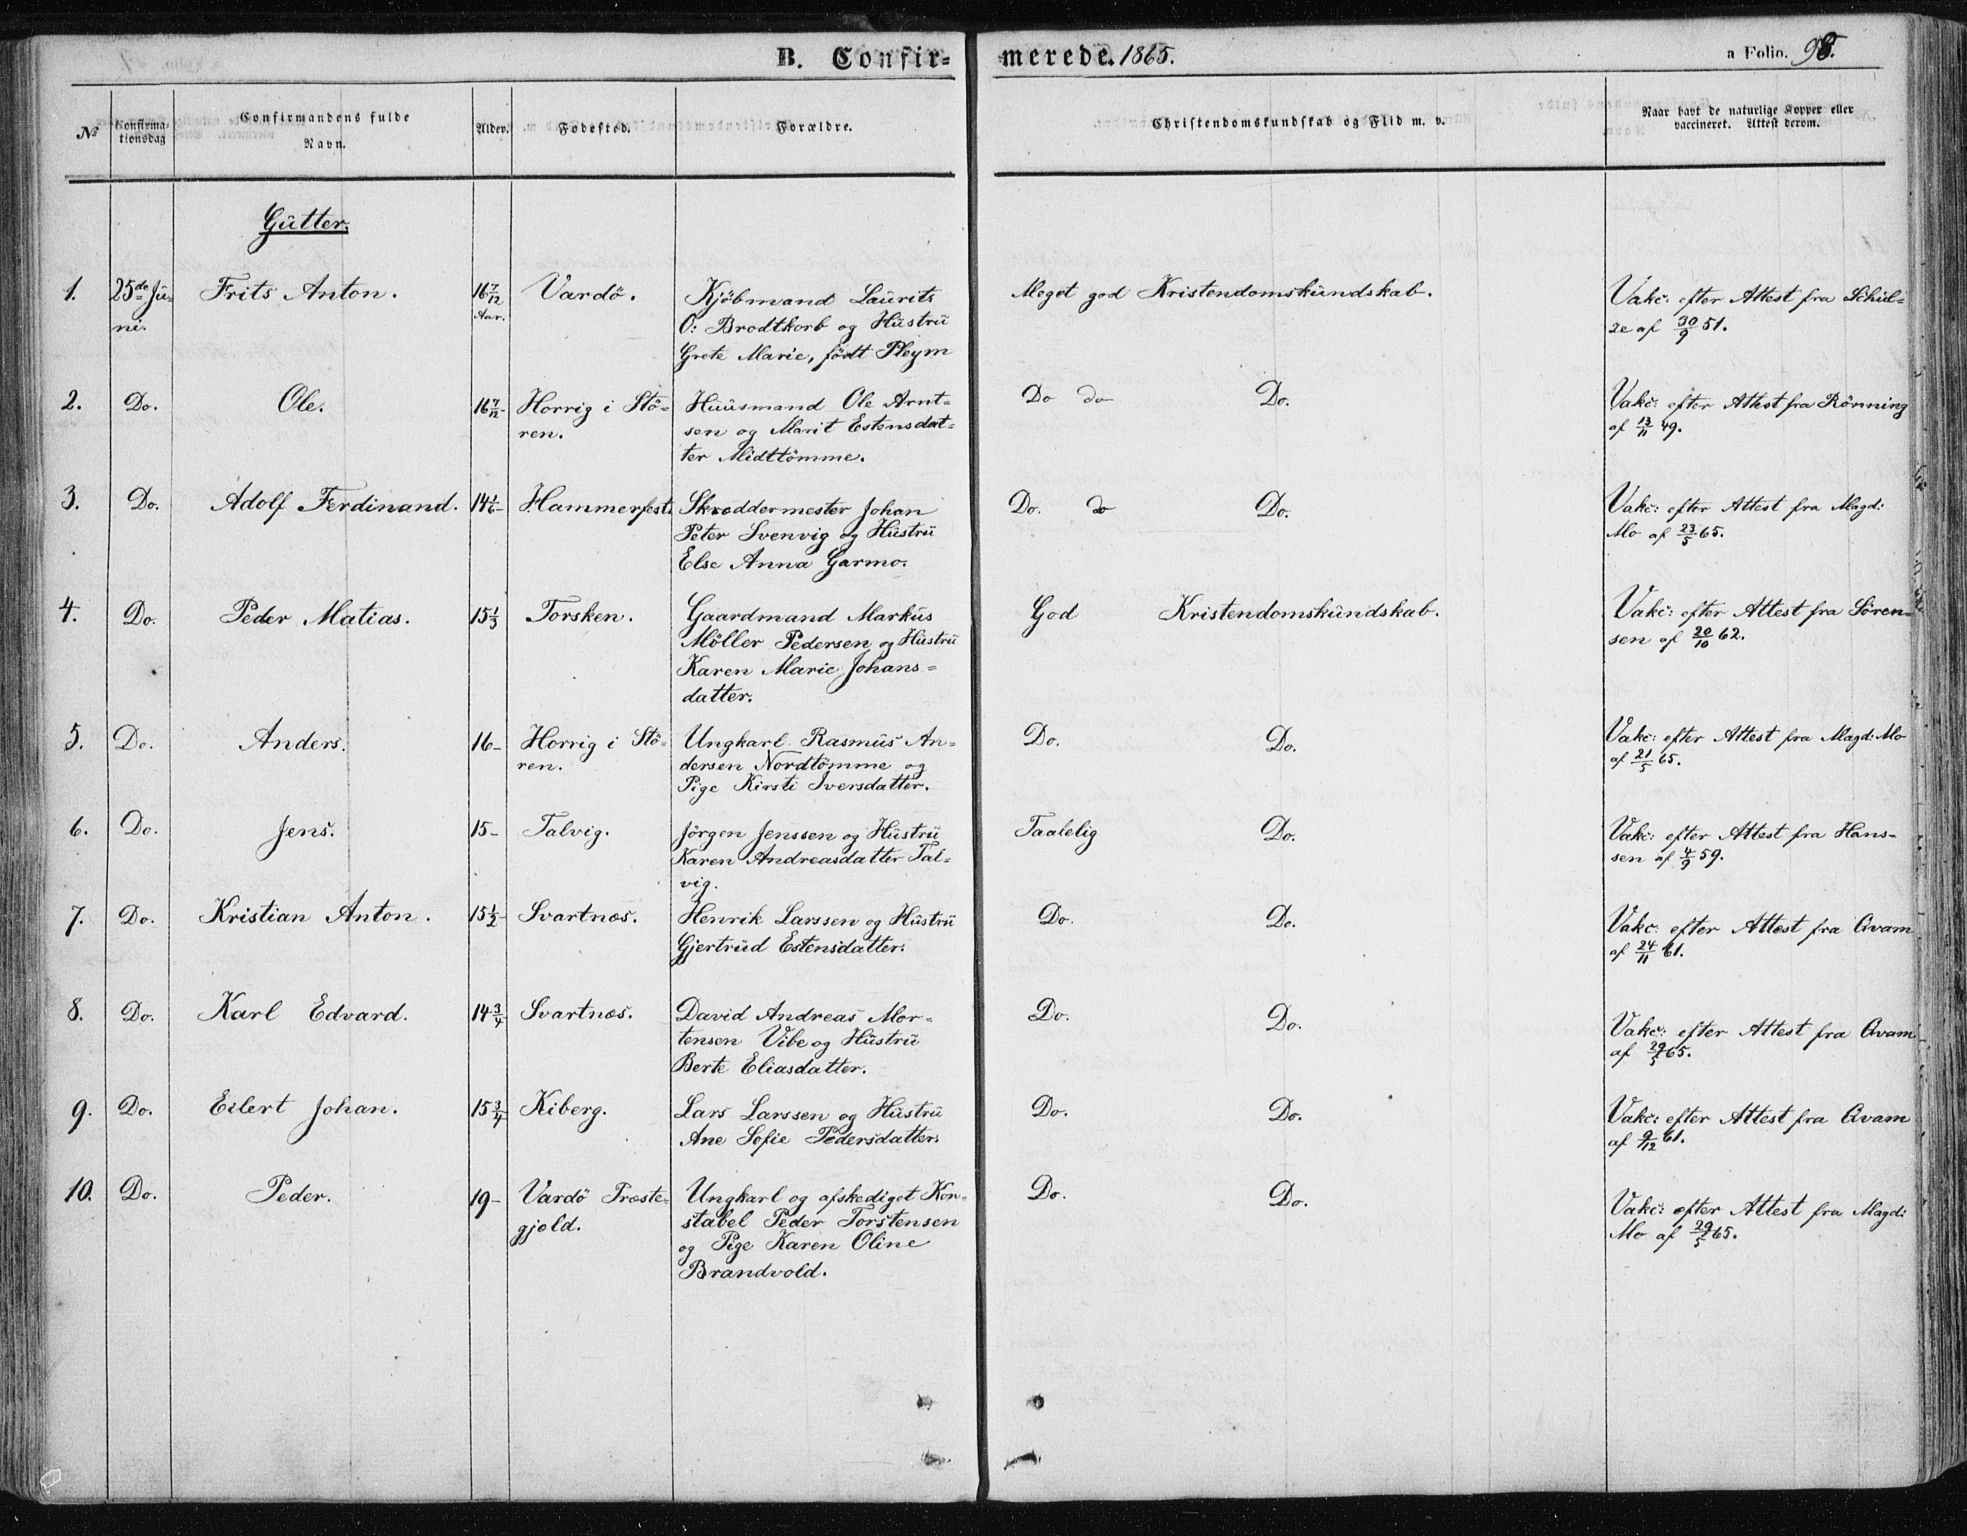 B. Confirmerede. 1865. a Folio. 98.
№ Confirmationsdag Confirmandens fulde Navn. Alder. Fødested. Forældre. Christendomskundskab og Flid m. v. Naar havt de naturlige Kopper eller vaccineret. Attest derom.
Gütter.
1. 25de Jü- Frits Anton. 16 7/12 Vardö. Kjöbmand Laurits Meget god Kristendomskündskab. Vakc: efter Attest fra Schül-
ni. Aar. O: Brodtkorb og Hüstrü ze af 30/9 51.
Grete Marie, födt Pleym
2. Do. Ole. 16 7/12- Horrig i Stö- Hüüsmand Ole Arnt- Do do Do. Vakc: efter Attest fra Rönning
ren. sen og Marit Estensdat- af 13/11 49.
ter Midttömme.
3. Do. Adolf Ferdinand. 14 1/6- Hammerfest. Skræddermester Johan Do. do Do. Vakc: efter Attest fra Magd:
Peter Svenvig og Hüstrü Mo af 23/5 65.
Else Anna Garmo.
4. Do. Peder Matias. 15 1/3 Torsken. Gaardmand Marküs God Kristendomskündskab. Vakc: efter Attest fra Sören-
Möller Pedersen og Hüstrü sen af 20/10 62.
Karen Marie Johans-
datter.
5. Do. Anders. 16- Horrig i Stö- Ungkarl Rasmüs An- Do. Do. Vakc: efter Attest fra Magd: Mo
ren. dersen Nordtömme og af 21/5 65.
Pige Kirsti Iversdatter.
6. Do. Jens. 15- Talvig. Jörgen Jenssen og Hüstrü Taalelig Do. Vakc: efter Attest fra Hans-
Karen Andreasdatter Tal- sen af 4/9 59.
vig.
7. Do. Kristian Anton. 15 1/2- Svartnæs. Henrik Larssen og Hüstrü Do. Do. Vakc: efter Attest fra Qvam
Gjertrüd Estensdatter. af 24/11 61.
8. Do. Karl Edvard. 14 3/4 Svartnæs. David Andreas Mor- Do. Do. Vakc: efter Attest fra Qvam
tensen Vibe og Hüstrü af 29/5 65.
Berte Eliasdatter.
9. Do. Eilert Johan. 15 3/4 Kiberg. Lars Larssen og Hüstrü Do. Do. Vakc: efter Attest fra Qvam
Ane Sofie Pedersdatter. af 9/12 61.
10. Do. Peder. 19- Vardö Præste- Ungkarl og afskediget Kon- Do. Do. Vakc: efter Attest fra Magd:
gjeld. stabel Peder Torstensen Mo af 29/5 65.
og Pige Karen Oline
Brandvold.